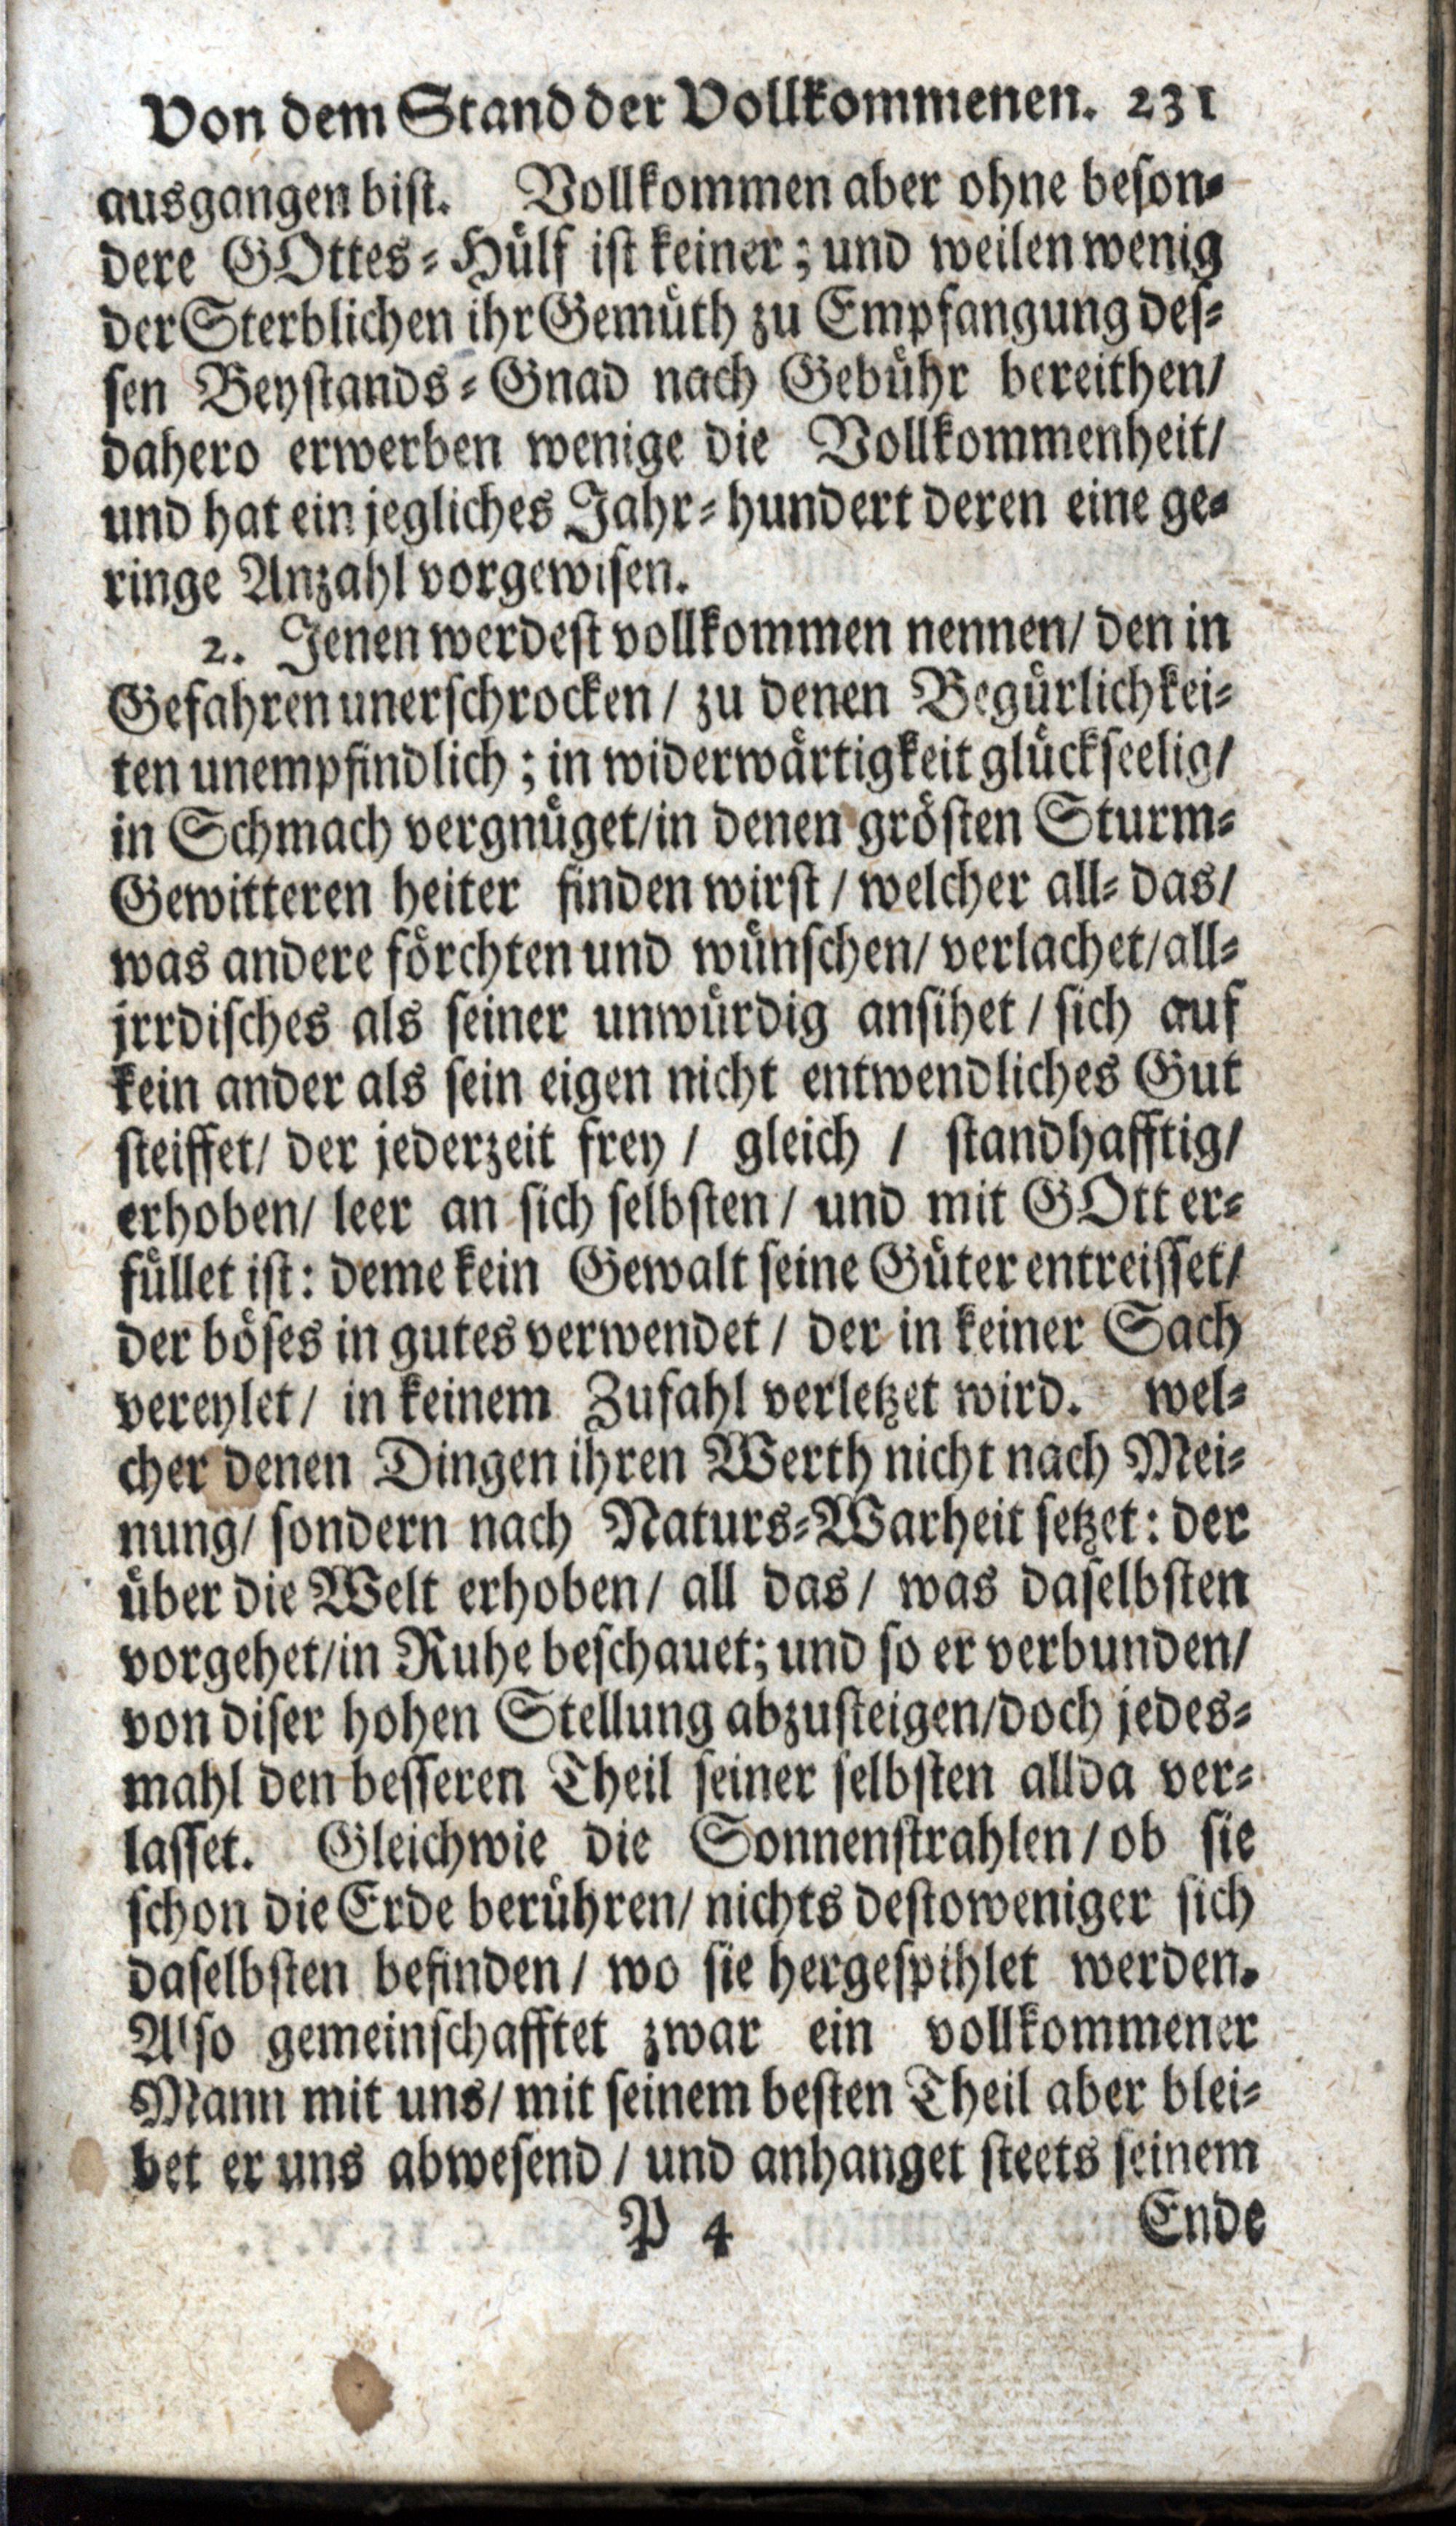 Von dem Stand der Vollkommenen. 231
ausgangen bist. Vollkommen aber ohne beson-
dere GOttes-Hülf ist keiner; und weilen wenig
der Sterblichen ihr Gemüth zu Empfangung des-
sen Beystands-Gnad nach Gebühr bereithen/
dahero erwerben wenige die Vollkommenheit/
und hat ein jegliches Jahr-hundert deren eine ge-
ringe Anzahl vorgewisen.
2. Jenen werdest vollkommen nennen/ den in
Gefahren unerschrocken / zu denen Begürlichkei-
ten unempfindlich; in widerwärtigkeit glückseelig/
in Schmach vergnüget/in denen grösten Sturm-
Gewitteren heiter finden wirst / welcher all-das/
was andere förchten und wünschen/ verlachet/all-
jrrdisches als seiner unwürdig ansihet / sich auf
kein ander als sein eigen nicht entwendliches Gut
steiffet/ der jederzeit frey / gleich / standhafftig/
erhoben/ leer an sich selbsten / und mit GOtt er-
füllet ist: deme kein Gewalt seine Güter entreisset/
der böses in gutes verwendet / der in keiner Sach
vereylet / in keinem Zufahl verletzet wird. wel-
cher denen Dingen ihren Werth nicht nach Mei-
nung/ sondern nach Naturs-Warheit setzet: der
über die Welt erhoben/ all das/ was daselbsten
vorgehet/in Ruhe beschauet; und so er verbunden/
von diser hohen Stellung abzusteigen/doch jedes-
mahl den besseren Theil seiner selbsten allda ver-
lasset. Gleichwie die Sonnenstrahlen / ob sie
schon die Erde berühren/ nichts destoweniger sich
daselbsten befinden / wo sie hergespihlet werden.
Also gemeinschafftet zwar ein vollkommener
Mann mit uns/ mit seinem besten Theil aber blei-
bet er uns abwesend / und anhanget steets seinem
P 4 Ende